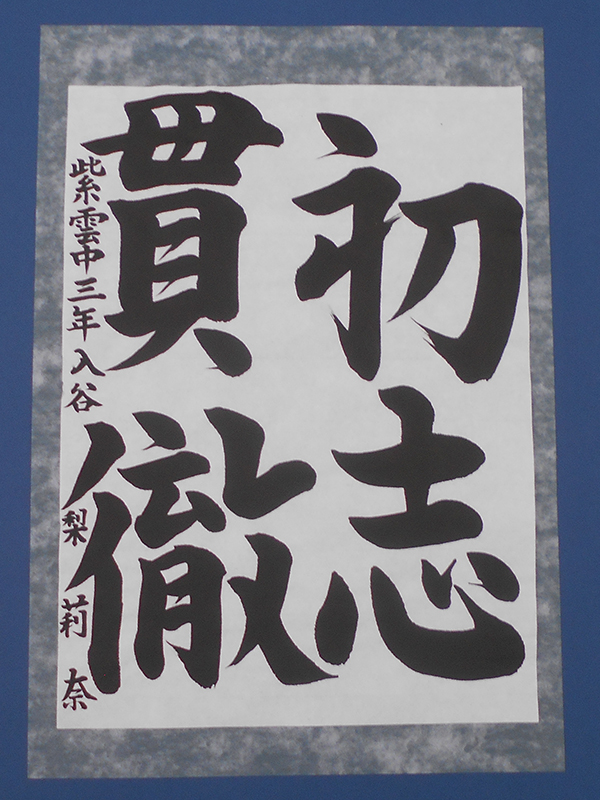 初志
貫徹
紫雲中三年 入谷 梨莉奈